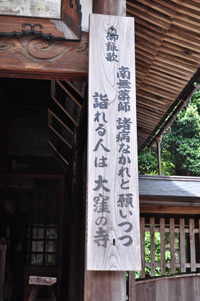 御詠歌
南無薬師 諸病なかれと 願いつつ
詣れる人は 大窪の寺